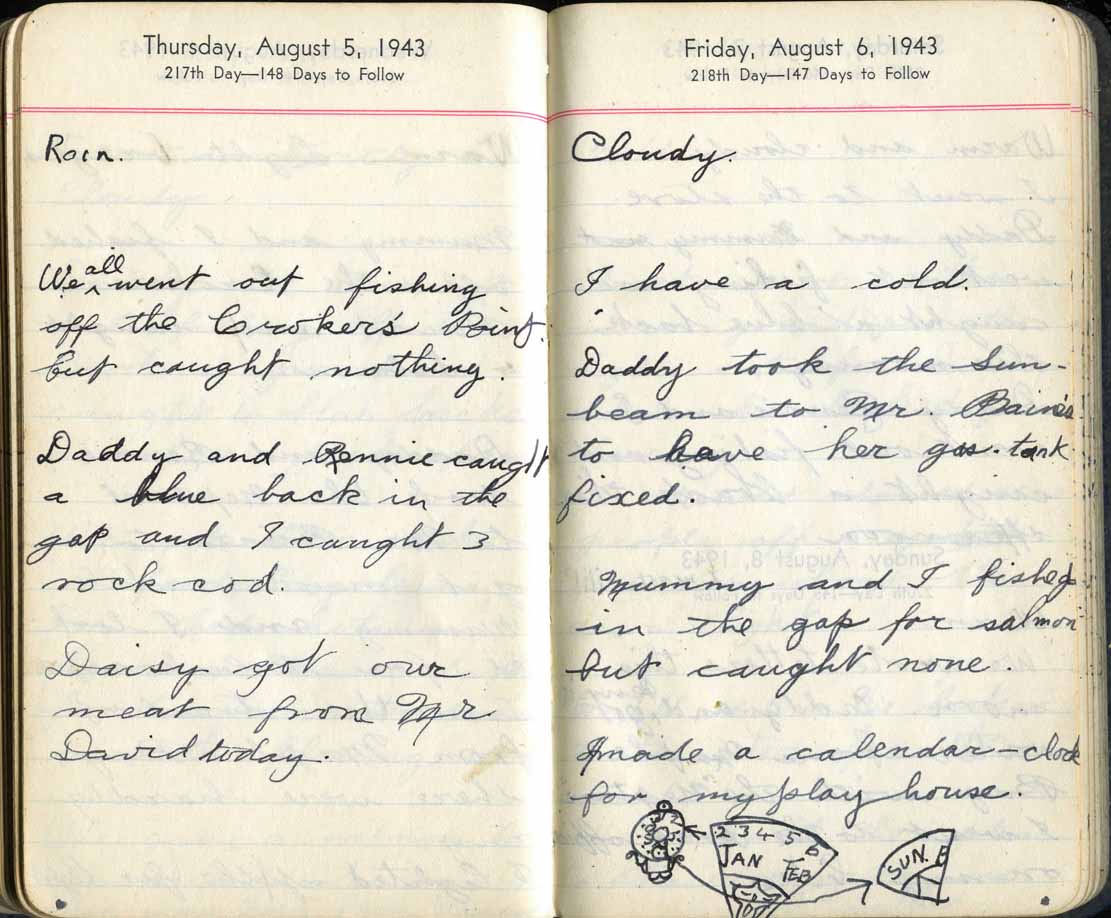 Thursday, August 5, 1943
217th Day—148 Days to Follow
Rain.
We all went out fishing
off the Croker's Point.
but caught nothing.
Daddy and Rennie caught
a blue back in the
gap and I caught 3
rock cod.
Daisy got our
meat from Mr.
David today.
Friday, August 6, 1943
218th Day—147 Days to Follow
Cloudy.
I have a cold.
Daddy took the Sun-
beam to Mr. Baines
to have her gas tank
fixed.
Mummy and I fished
in the gap for salmon
but caught none.
I made a calendar-clock
for my play house.
2 3 4 5 6
JAN FEB
SUN.